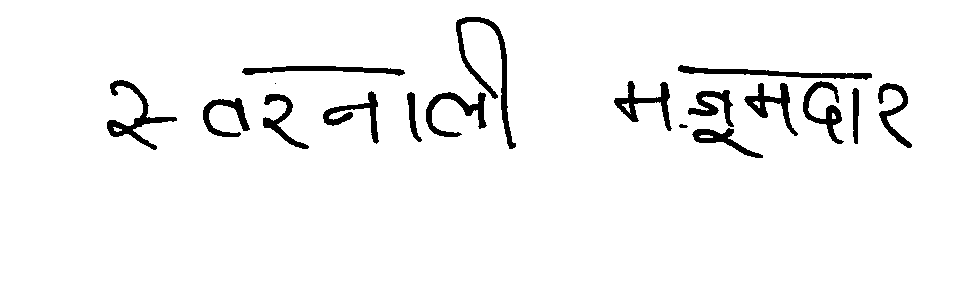 स्तरनाली मजूमदार